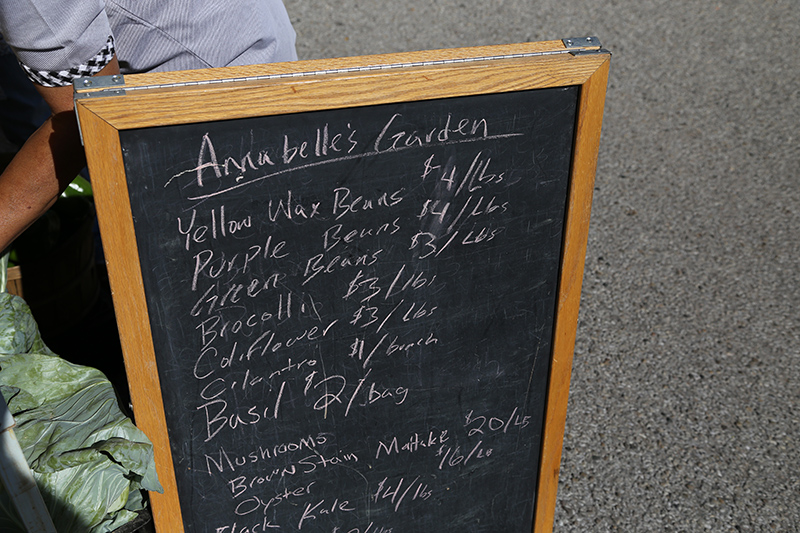 Annabelle's Garden
Yellow Wax Beans $4/lbs
Purple Beans $4/Lbs
Green Beans $3/Lbs
Brocolli $3/lbs
Coliflower $3/Lbs
Cilantro $1/bunch
Basil $2/bag
Mushrooms
Brown Stain, Maitake $20/Lb
Oyster $16/Lb
Black Kale $4/lbs